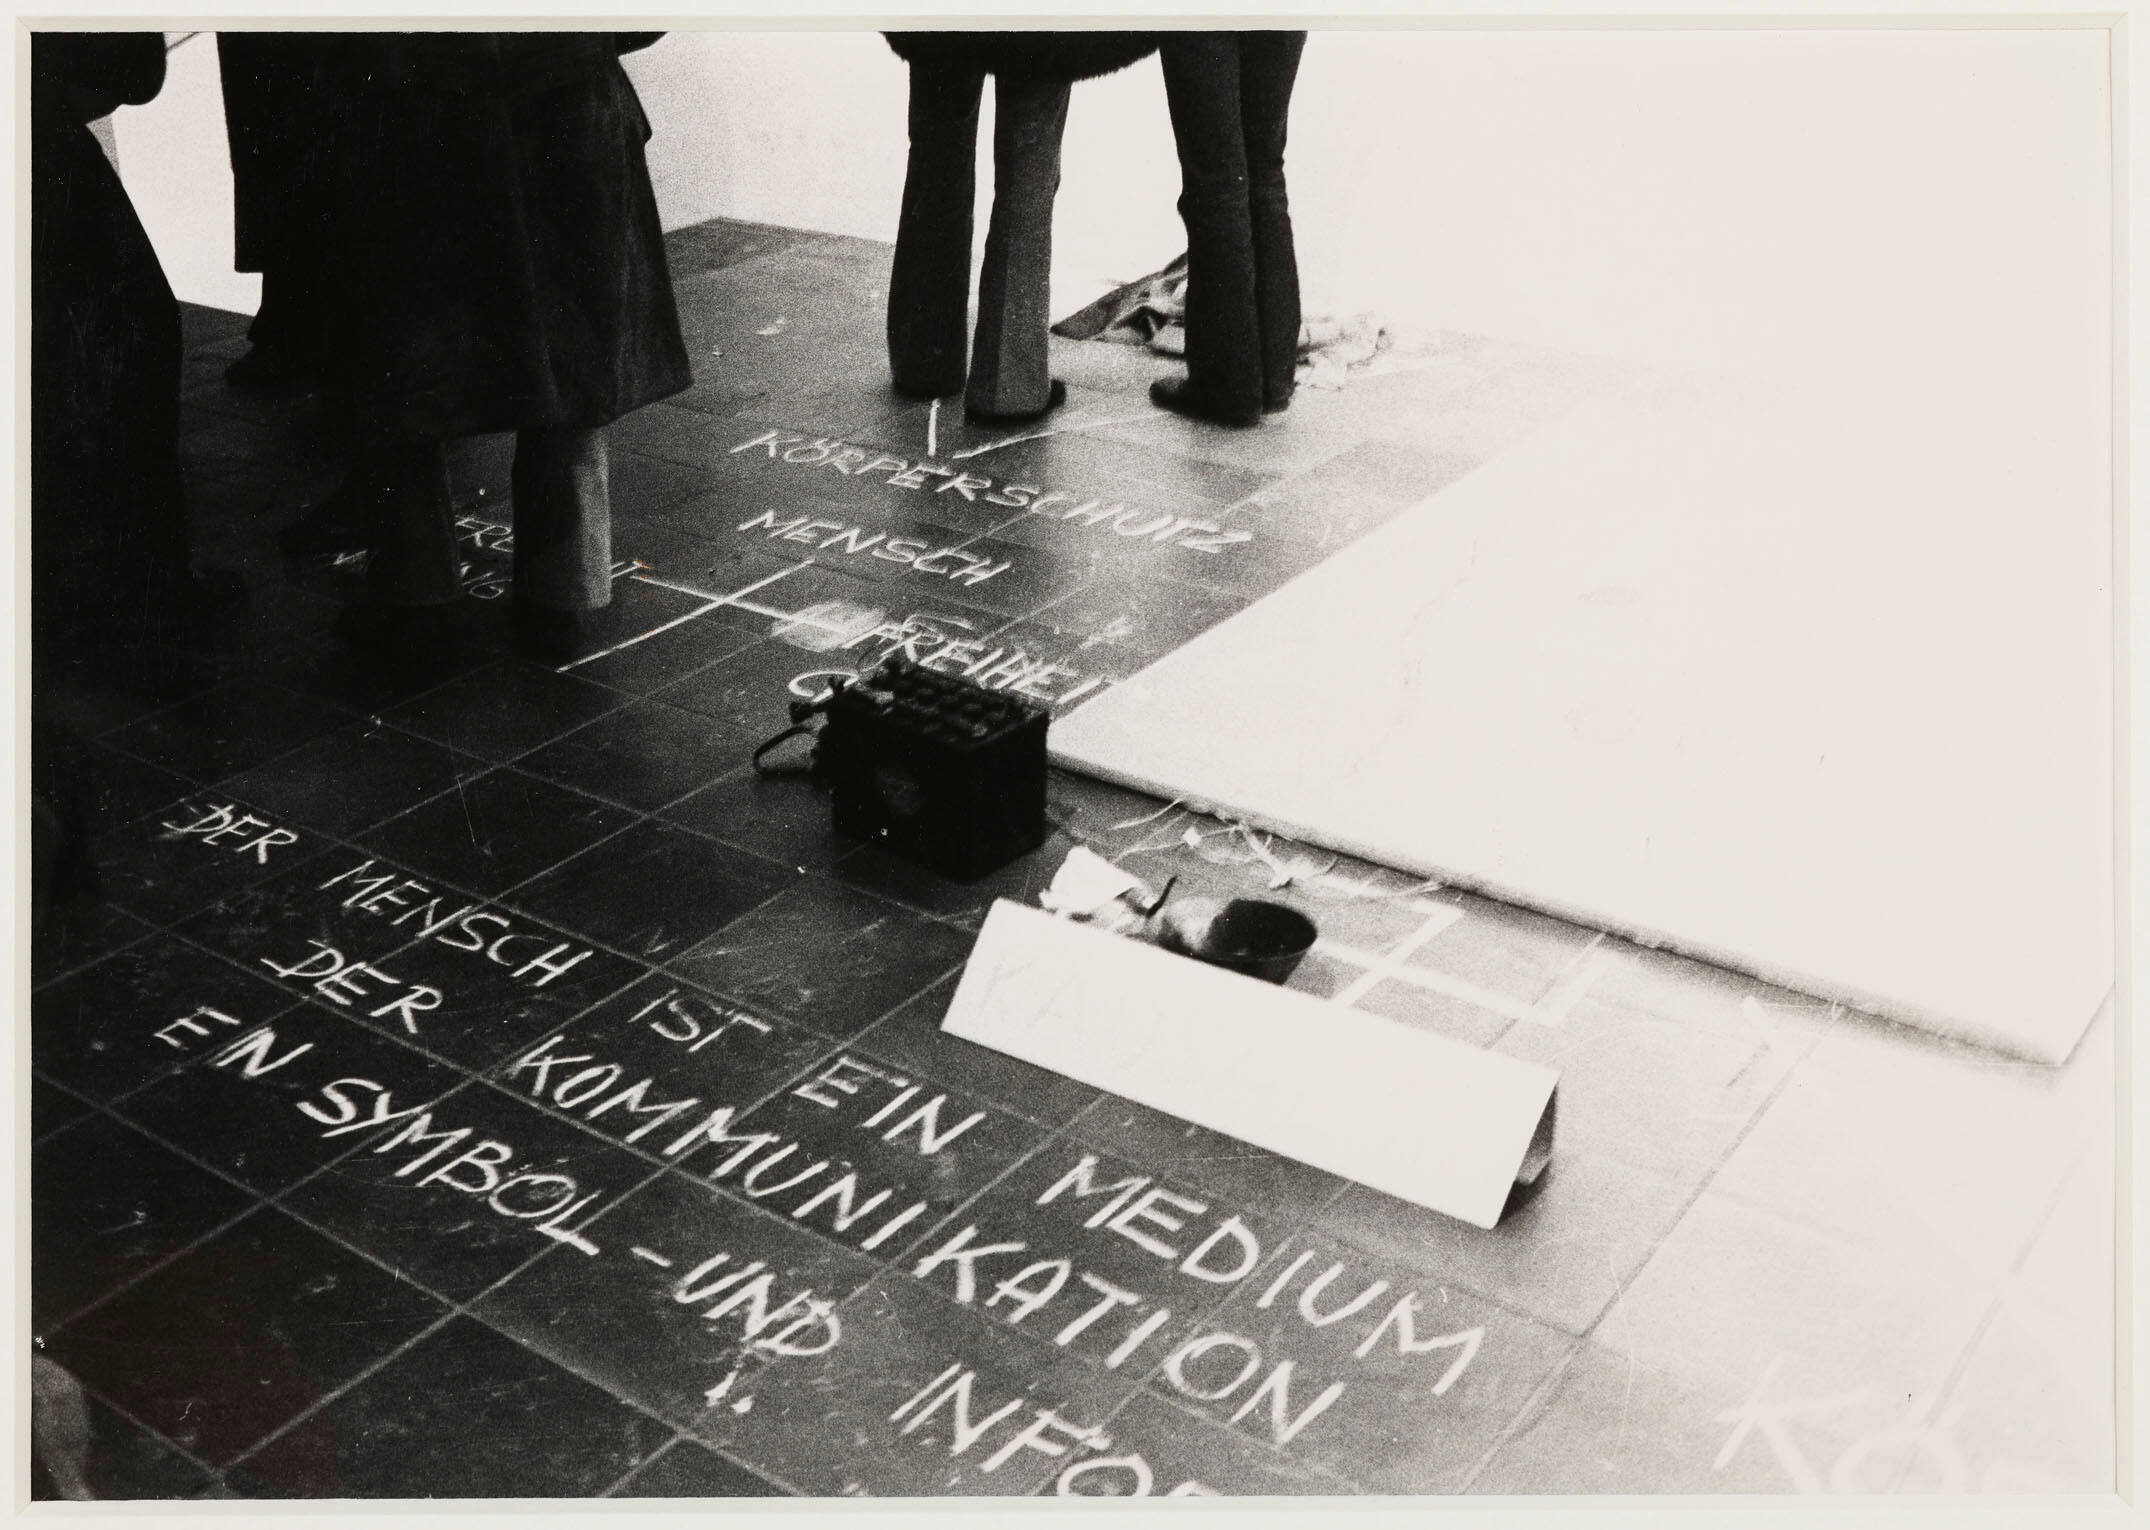 KÖRPERSCHUTZ
MENSCH
FREIHEIT
DER MENSCH IST EIN MEDIUM
DER KOMMUNIKATION
EIN SYMBOL-UND INFOR
KÖR